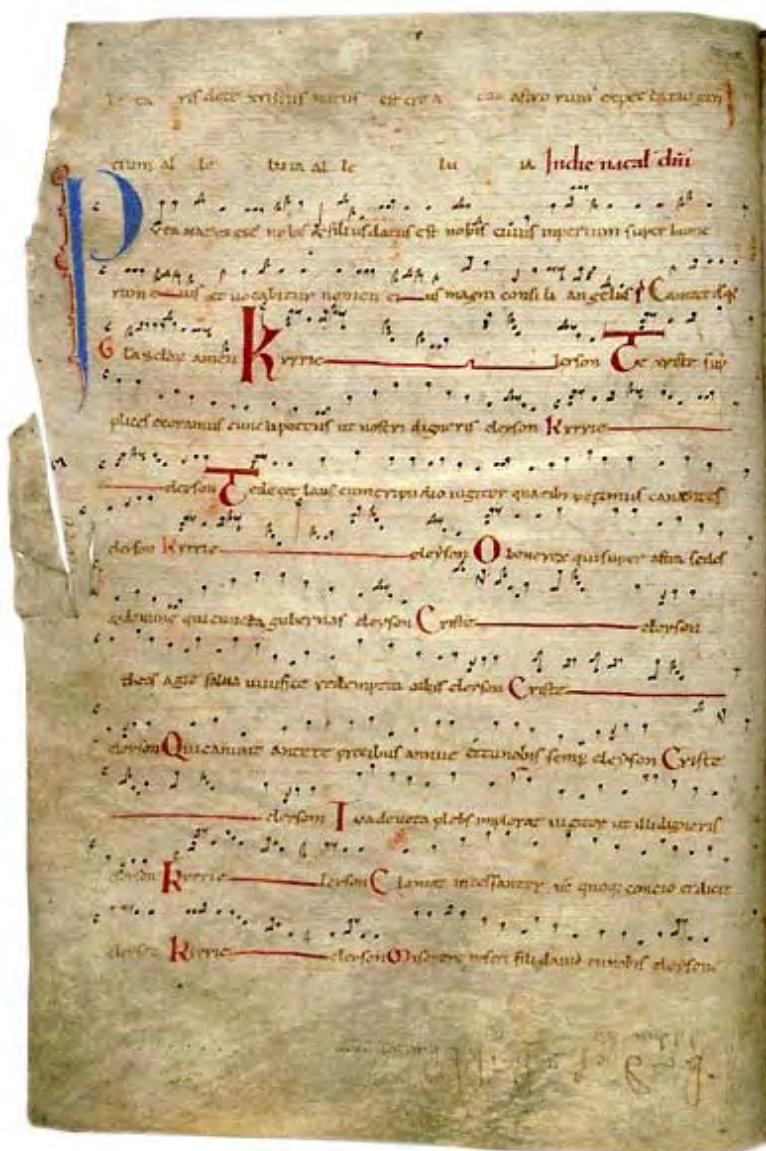 ris dete xpistus natus est ex a astro rum expectatio gen
cium al le luia al le lu ia In die natal dni
Puer natus est nobis & filius datus est nobis cuius inperium super hume
rum eius et uocabitur nomen eius magni consili angelus Cantate
Gla seclor amen Kyrie leison Te xpiste sup
plices exoramus cunctipotens ut nostri digneris eleyson Kyrie
eleyson Te decet laus cum tripudio iugiter qua tibi petimus canentes
eleyson Kyrie eleyson O bone rex qui super astra sedes
et domine qui cuncta gubernas eleyson Criste eleyson
theos agie salua uiuifice redemptor eleyson Criste
eleyson Qui canunt ante te precibus annue & tu nobis semp eleyson Criste
eleyson Tua deuota plebs implorat iugiter ut digneris
eleyson Kyrie leison Clamat incessanter quoq; concio et dicit
eleyson Kyrie eleyson Miserere fili dauid tu nobis eleyson